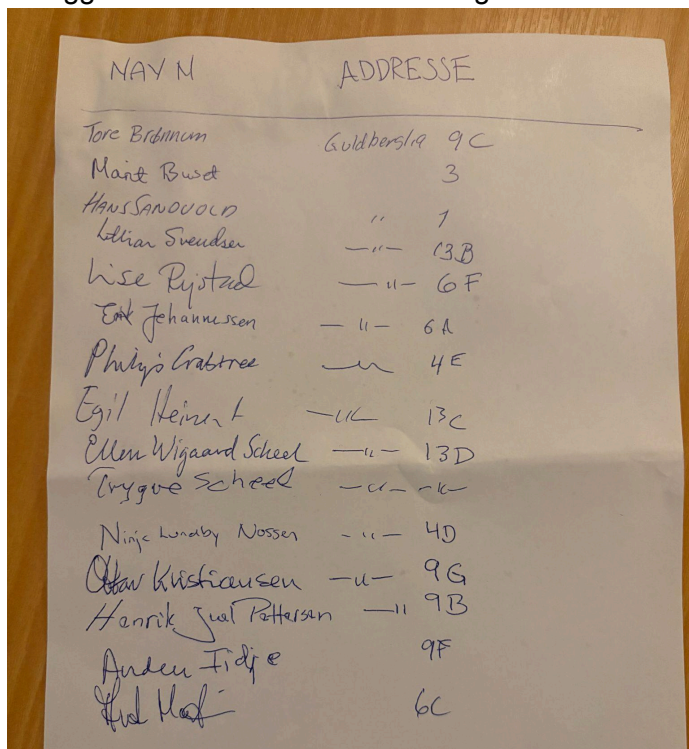 NAVN ADDRESSE
Tore Brønnum Guldberglia 9C
Marit Buset 3
HANS SANDVOLD " 1
Lillian Svendsen —"— 13B
Lise Rystad —"— 6F
Erik Johannessen —"— 6A
Philip Crabtree —"— 4E
Egil —"— 13C
Ellen Wigaard Scheel —"— 13D
Trygve Scheel —"— —"—
Ninja Lundby Nossen —"— 4D
Ottar Kristiansen —"— 9G
Henrik Juel Pettersen —" 9B
9F
6C